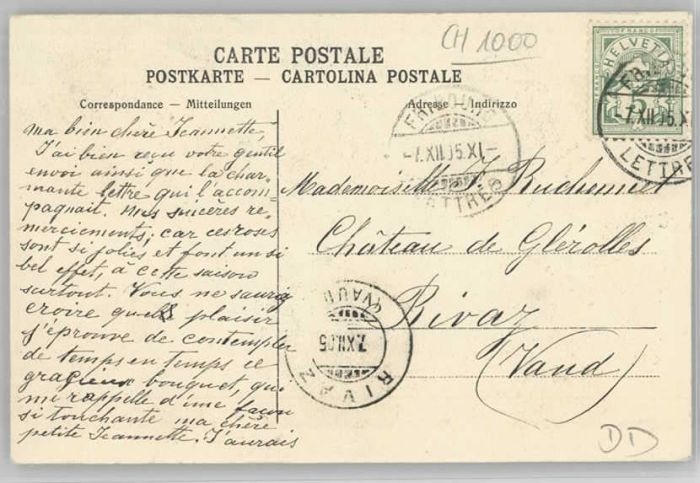 CH 1000
CARTE POSTALE
POSTKARTE — CARTOLINA POSTALE
Correspondance — Mitteilungen
Adresse — Indirizzo
HELVETIA
FRIBOURG
-7.XII.05.XI-
LETTRES
7.XII.05.XI-
LETTRES
ma bien chère Jeannette,
J'ai bien reçu votre gentil
envoi ainsi que la char-
mante lettre qui l'accom-
pagnait. Mes sincères re-
merciements; car ces roses
sont si jolies et font un si
bel effet, à cette saison
surtout. Vous ne sauriez
croire quel plaisir
j'éprouve de contempler
de temps en temps ce
gracieux bouquet, qui
me rappelle d'une façon
si touchante ma chère
petite Jeannette. J'aurais
Mademoiselle J.
Château de Glérolles
Rivaz
(Vaud)
RIVAZ
7.XII.05
(VAUD)
DD